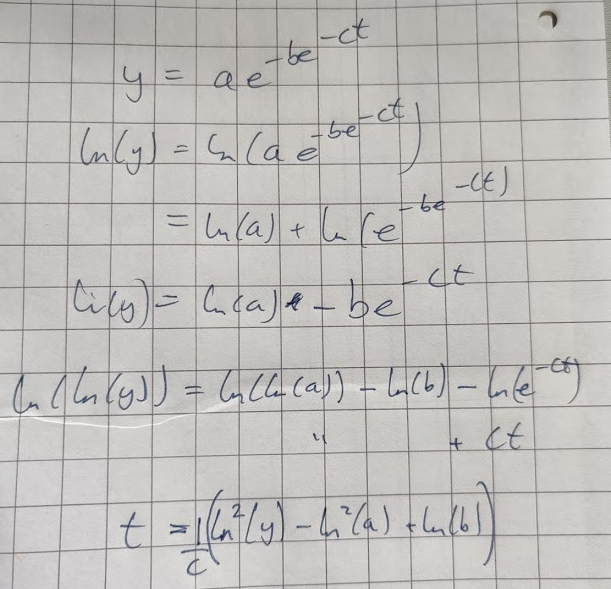 y = ae^{-be^{-ct}}
ln(y) = ln(a e^{-be^{-ct}})
= ln(a) + ln(e^{-be^{-ct}})
ln(y) = ln(a) - be^{-ct}
ln(ln(y)) = ln(ln(a)) - ln(b) - ln(e^{-ct})
" + ct
t = 1/c (ln²(y) - ln²(a) + ln(b))